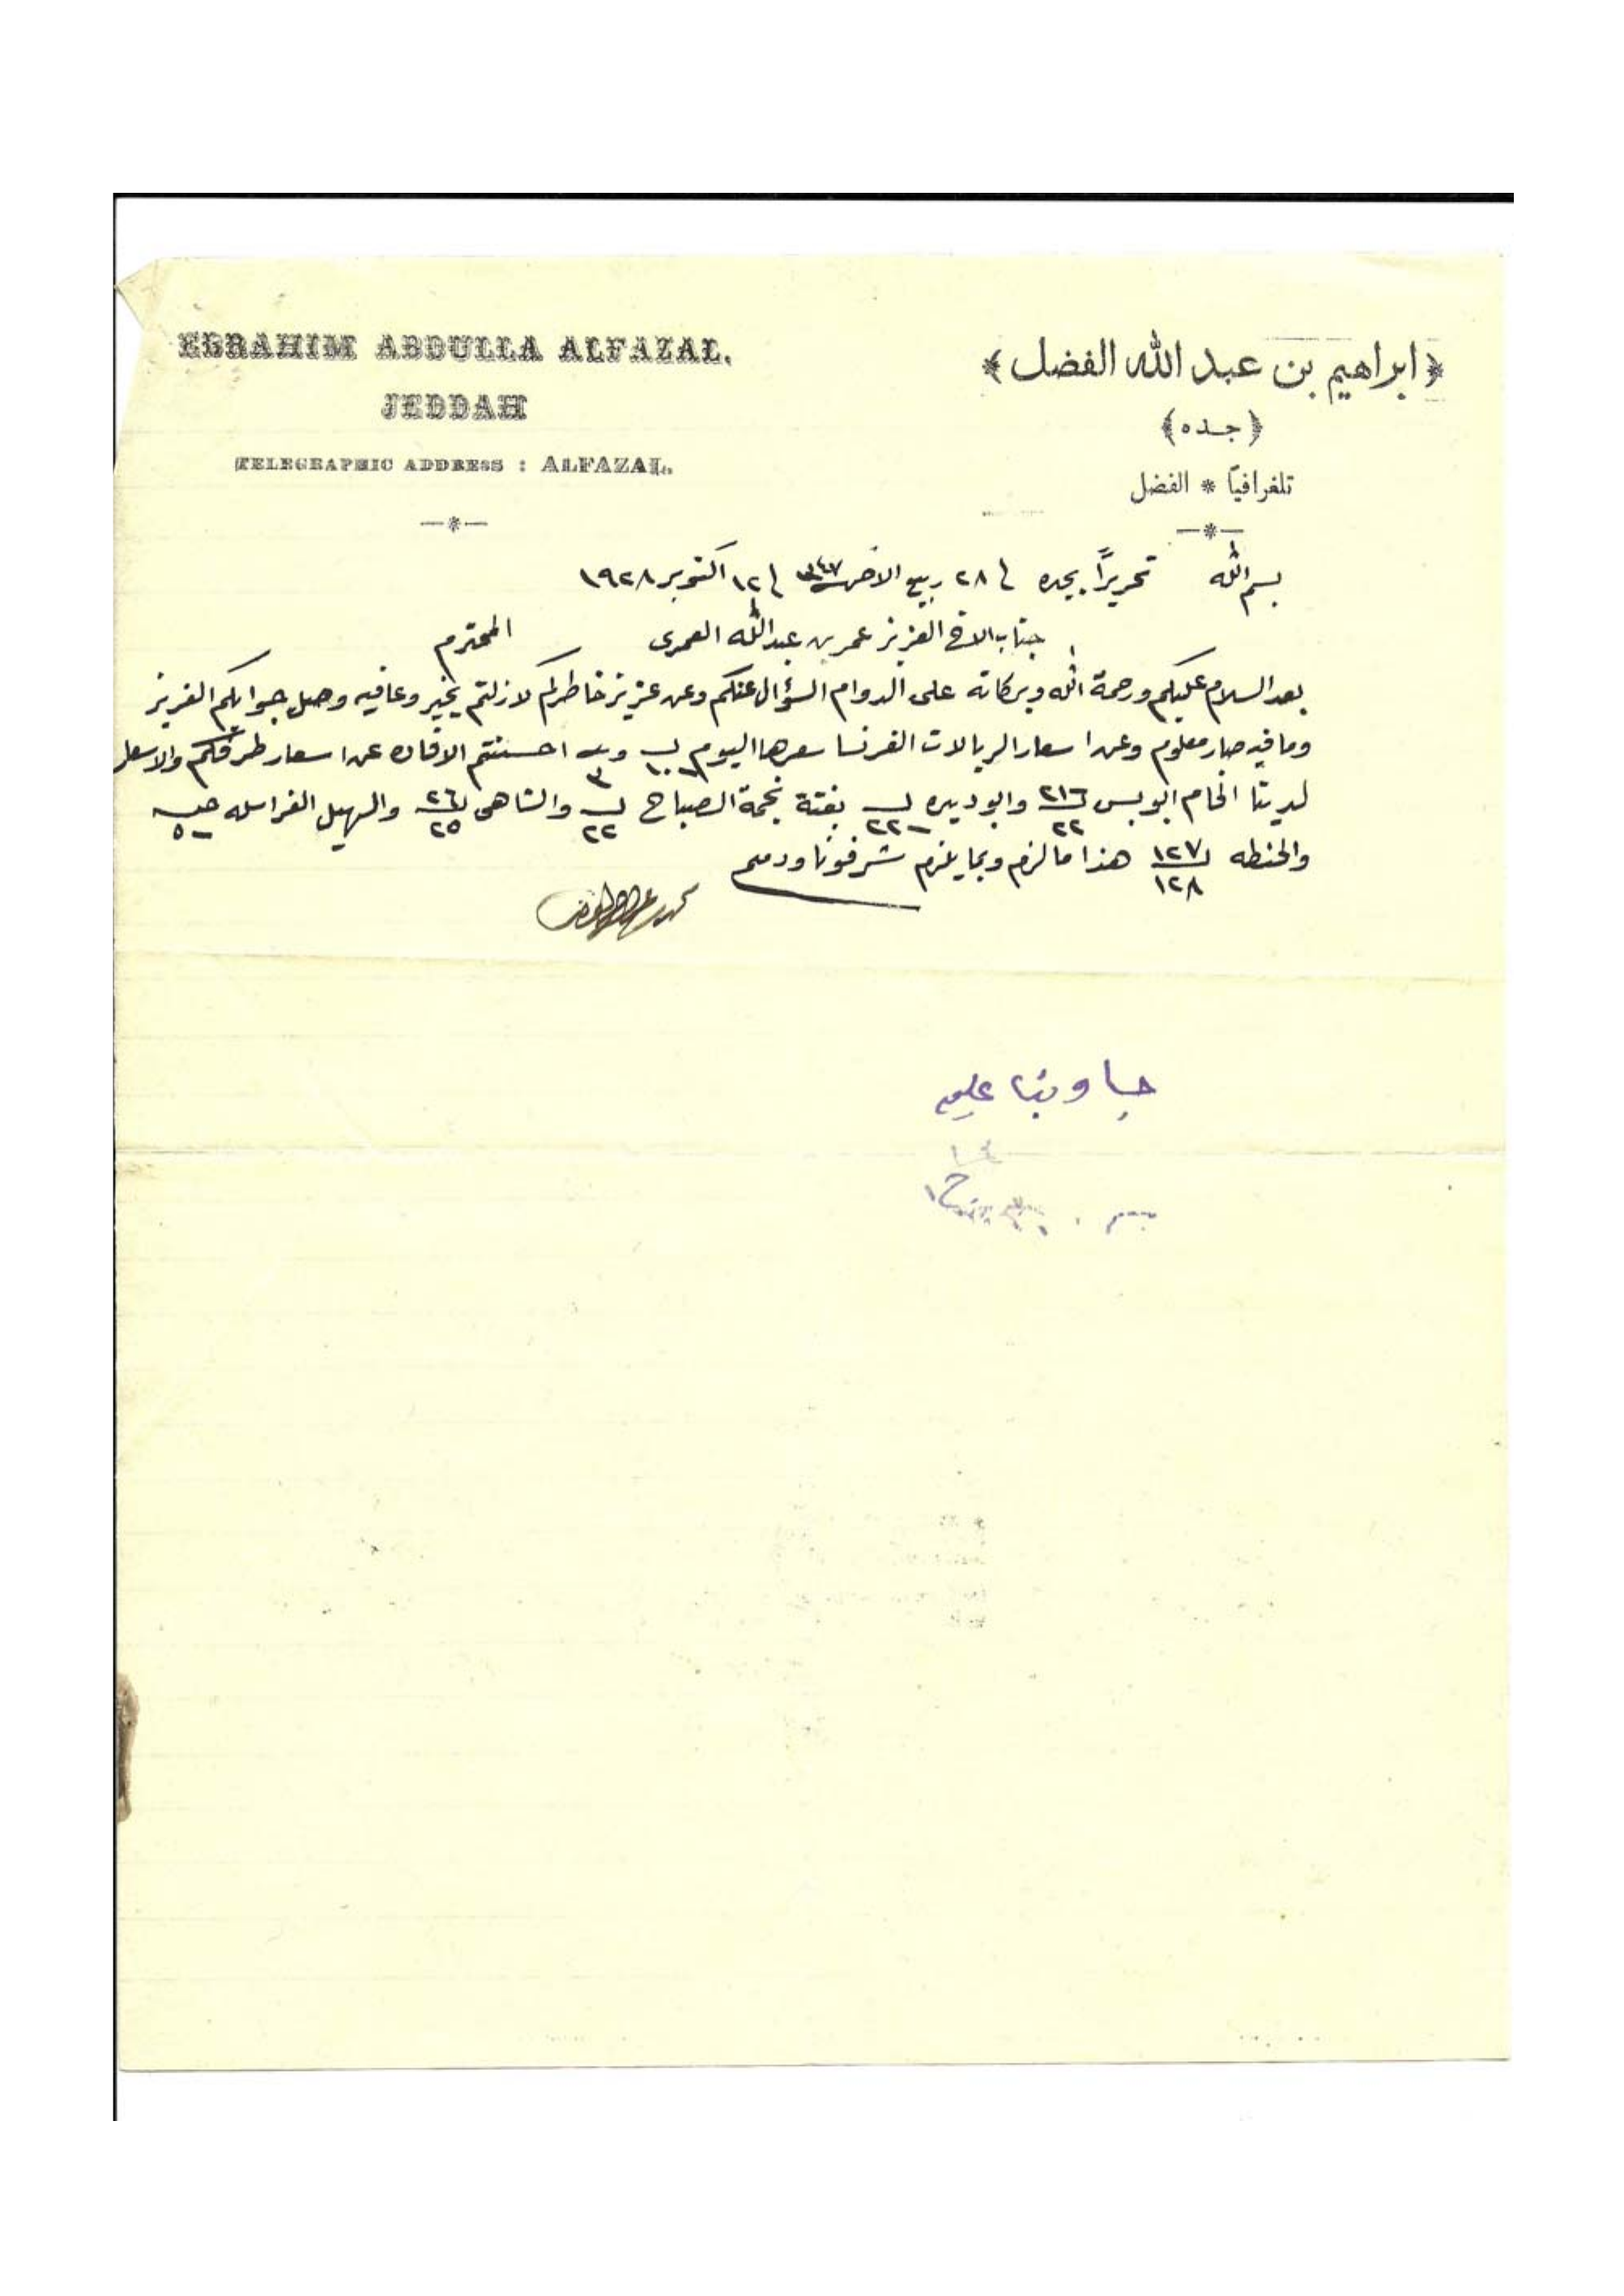 EBRAHIM ABDULLA ALFAZAL.
JEDDAH
TELEGRAPHIC ADDRESS : ALFAZAL.
﴿ ابراهيم بن عبد الله الفضل ﴾
﴿ جده ﴾
تلغرافيًا * الفضل
بسم الله تحريرًا بجده في ٢٨ ربيع الاخر ١٣٤٧ في ١٢ اكتوبر ١٩٢٨
جناب الاخ العزيز عمر بن عبدالله العمرى المحترم
بعد السلام عليكم ورحمة الله وبركاته على الدوام السؤال عنكم وعن عزيز خاطركم لازلتم بخير وعافيه وصل جوابكم العزيز
وما فيه صار معلوم وعن اسعار الريالات الفرنسا سعرها اليوم احسنتم الافاده عن اسعار طرفكم والاسعار
لدينا الخام ابوبس ٢١٦ ٢٢ وابو ديره ٢٢٠ بفتة نجمة الصباح ٢٢ والشاهى ٢٦ ٢٥ والهيل الفراسله ٥٠
والحنطه ١٢٧ ١٢٨ هذا ما لزم وبما يلزم شرفونا ودمتم
جاوبنا عليه